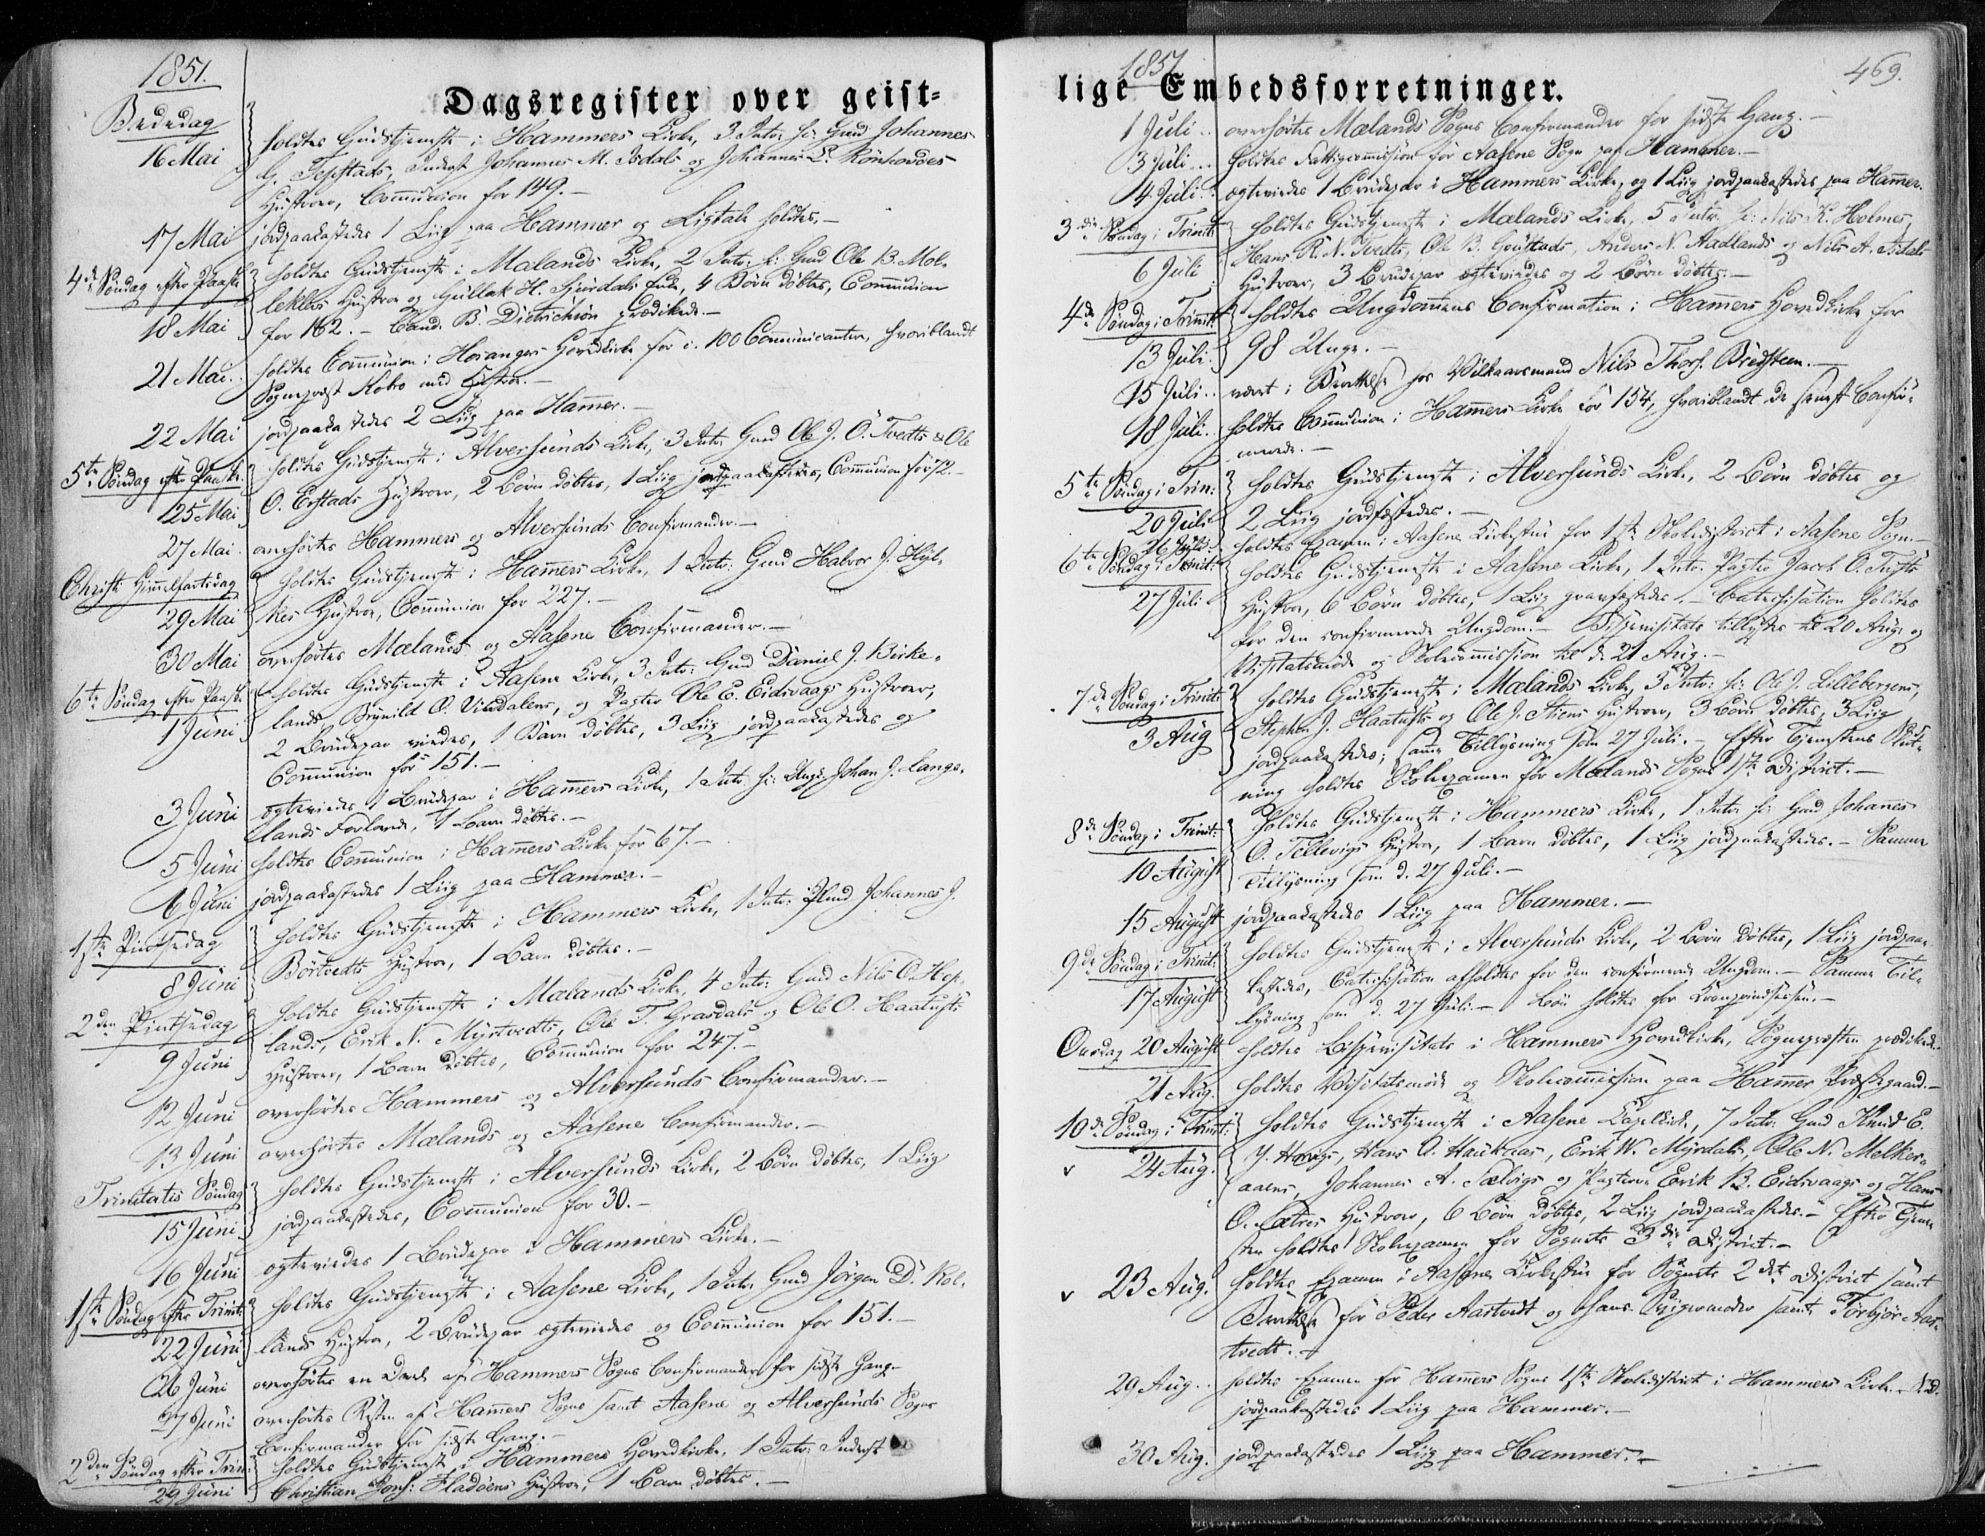 1851.
Dagsregister over geist-
Bededag
16 Mai
holdtes Gudstjeneste i Hammers Kirke, 3 Intr: fr: Gmd Johannes
G. Tepstads, Inderst Johannes M. Isdals og Johannes L. Rönhovdes
Hustroer, Communion for 149.-
17 Mai
jordpaakastedes 1 Liig paa Hammer og Ligtale holdtes.-
4de Søndag efter Paaske
18 Mai
holdtes Gudstjeneste i Mælands Kirke, 2 Intr: fr: Gmd Ole B. Mol-
leklevs Hustroe og Gullak H. Hjerdals Enke, 4 Børn døbtes, Communion
for 162.- Cand. B. Dietrichson prædikede.-
21 Mai.
holdtes Communion i Hosangers Hovedkirke for c. 100 Communicanter, hvoriblandt
Sognepræst Kobro med Hustroe.-
22 Mai
jordpaakastedes 2 Liig paa Hammer.-
5te Søndag efter Paaske
25 Mai
holdtes Gudstjeneste i Alversunds Kirke, 3 Intr: Gmd Ole J. Ö. Tvedts & Ole
O. Erstads Hustroer, 2 Børn døbtes, 1 Liig jordpaakastedes, Communion for 72.-
27 Mai.
overhørtes Hammers og Alversunds Confirmander.-
Christi Himmelfartsdag
29 Mai
holdtes Gudstjeneste i Hammers Kirke, 1 Intr: Gmd Halvor J.
Hustroe, Communion for 227.-
30 Mai
overhørtes Mælands og Aasene Confirmander.-
6te Søndag efter Paaske
1 Juni
holdtes Gudstjeneste i Aasene Kirke, 3 Intr: Gmd Daniel J. Birke-
lands, Brynild O. Vindalens, og Pagter Ole E. Eidsvaags Hustroer,
2 Brudepar viedes, 1 Barn døbtes, 3 Liig jordpaakastedes og
Communion for 151.-
3 Juni
ægteviedes 1 Brudepar i Hammers Kirke, 1 Intr: fr: Ungk. Johan J. Lange-
lands Forlovede, 1 Barn døbtes.-
5 Juni
holdtes Communion i Hammers Kirke for 67.-
6 Juni
jordpaakastedes 1 Liig paa Hammer.-
1ste Pintsedag
8 Juni
holdtes Gudstjeneste i Hammers Kirke, 1 Intr: Gmd Johannes J.
Börtvedts Hustroe, 1 Barn døbtes.-
2den Pintsedag
9 Juni
holdtes Gudstjeneste i Mælands Kirke, 4 Intr: Gmd Nils O. Hop-
lands, Erik N. Myrtvedts, Ole T. Grasdals og Ole O. Haatufts
Hustroer, 1 Barn døbtes, Communion for 247.-
12 Juni
overhørtes Hammers og Alversunds Confirmander.-
13 Juni
overhørtes Mælands og Aasene Confirmander.-
Trinitatis Søndag
15 Juni
holdtes Gudstjeneste i Alversunds Kirke, 2 Børn døbtes, 1 Liig
jordpaakastedes, Communion for 30.-
16 Juni
ægteviedes 1 Brudepar i Hammers Kirke.-
1ste Søndag efter Trinit:
22 Juni
holdtes Gudstjeneste i Aasene Kirke, 1 Intr: Gmd Jörgen D. Kol-
lands Hustroe, 2 Brudepar ægteviedes og Communion for 151.-
26 Juni
overhørtes en Deel af Hammers Sogns Confirmander for sidste Gang.-
27 Juni
overhørtes Resten af Hammers Sogns samt Aasene og Alversunds Sogns
Confirmander for sidste Gang.-
2den Søndag efter Trin:
29 Juni
holdtes Gudstjeneste i Hammers Hovedkirke, 1 Intr: Inderst
Christian Hans: Fladöens Hustroe, 1 Barn døbtes.-
1851
469.
lige Embedsforretninger.
1 Juli
overhørtes Mælands Sogns Confirmander for sidste Gang.-
3 Juli
holdtes Fattigcommission for Aasene Sogn paa Hammer.-
4 Juli
ægteviedes 1 Brudepar i Hammers Kirke, og 1 Liig jordpaakastedes paa Hammer.
3die Søndag i Trinit:
6 Juli
holdtes Gudstjeneste i Mælands Kirke, 5 Intr: fr: Nils K. Holmes,
Hans R. N. Tvedts, Ole B. Goustads, Anders N. Aadlands og Nils A. Isdals
Hustroer, 3 Brudepar ægteviedes og 2 Børn døbtes.-
4de Søndag i Trinit:
13 Juli
holdtes Ungdommens Confirmation i Hammers Hovedkirke for
98 Unge.-
15 Juli
været i Berettelse hos Vilkaarsmand Nils Thors. Bredsteen.-
18 Juli.
holdtes Communion i Hammers Kirke for 154, hvoriblandt de senest Confir-
merede.-
5te Søndag i Trin:
20 Juli
holdtes Gudstjeneste i Alversunds Kirke, 2 Børn døbtes og
2 Liig jordfæstedes.-
26 Juli
holdtes Examen i Aasene Kirkestue for 1ste Skoledistrict i Aasene Sogn.-
6te Søndag i Trinit:
27 Juli
holdtes Gudstjeneste i Aasene Kirke, 1 Intr: Pagter Jacob O.
Hustroe, 6 Børn døbtes, 1 Liig gravfæstedes.- Catechisation holdtes
for den confirmerede Ungdom.- Bispevisitats tillystes til 20 Aug. og
Visitatsmøde og Skolecommission til d. 21 Aug.-
7de Søndag i Trinit:
3 Aug
holdtes Gudstjeneste i Mælands Kirke, 3 Intr: fr: Ole J. Lillebergens,
Stephen J. Haatufts og Ole J. Stiens Hustroer, 3 Børn døbtes, 3 Liig
jordpaakastedes; samme Tillysning som 27 Juli.- Efter Tjenestens Slut-
ning holdtes Skoleexamen for Mælands Sogns 1ste District.-
8de Søndag i Trinit:
10 August
holdtes Gudstjeneste i Hammers Kirke, 1 Intr: fr: Gmd Johannes
O. Tellevigs Hustroe, 1 Barn døbtes, 1 Liig jordpaakastedes.- Samme
Tillysning som d. 27 Juli.-
15 August
jordpaakastedes 1 Liig paa Hammer.-
9de Søndag i Trinit:
17 August
holdtes Gudstjeneste i Alversunds Kirke, 2 Børn døbtes, 1 Liig jordpaa-
kastedes, Catechisation afholdtes for den confirmerede Ungdom.- Samme Til-
lysning som d. 27 Juli.- Bøn holdtes for Kronprindsessen.-
Onsdag 20 August
holdtes Bispevisitats i Hammers Hovedkirke, Sognepræsten prædikede.
21 Aug.
holdtes Visitatsmøde og Skolecommission paa Hammer Præstegaard.-
10de Søndag i Trinit:
v 24 Aug.
holdtes Gudstjeneste i Aasene Capelkirke, 7 Intr: Gmd Knud E.
Y. Hougs, Hans A. Haukaas, Erik W. Myrdals, Ole N. Melker-
aaens, Johannes A. Sælvigs og Pagterne Erik B. Eidsvaags og Hans
O. Sætres Hustroer, 6 Børn døbtes, 2 Liig jordpaakastedes.- Efter Tjene-
sten holdtes Skoleexamen for Sognets 3die District.-
v 23 Aug.
holdtes Examen i Aasene Kirkestue for Sognets 2det District samt
Berettelse for Peder Aastvedt og hans Svigermoder samt Torbjör Aas-
tvedt.-
29 Aug.
holdtes Examen for Hammers Sogns 1ste Skoledistrict i Hammers Kirke.- S.D.
jordpaakastedes 1 Liig paa Hammer.-
30 Aug.
jordpaakastedes 1 Liig paa Hammer.-